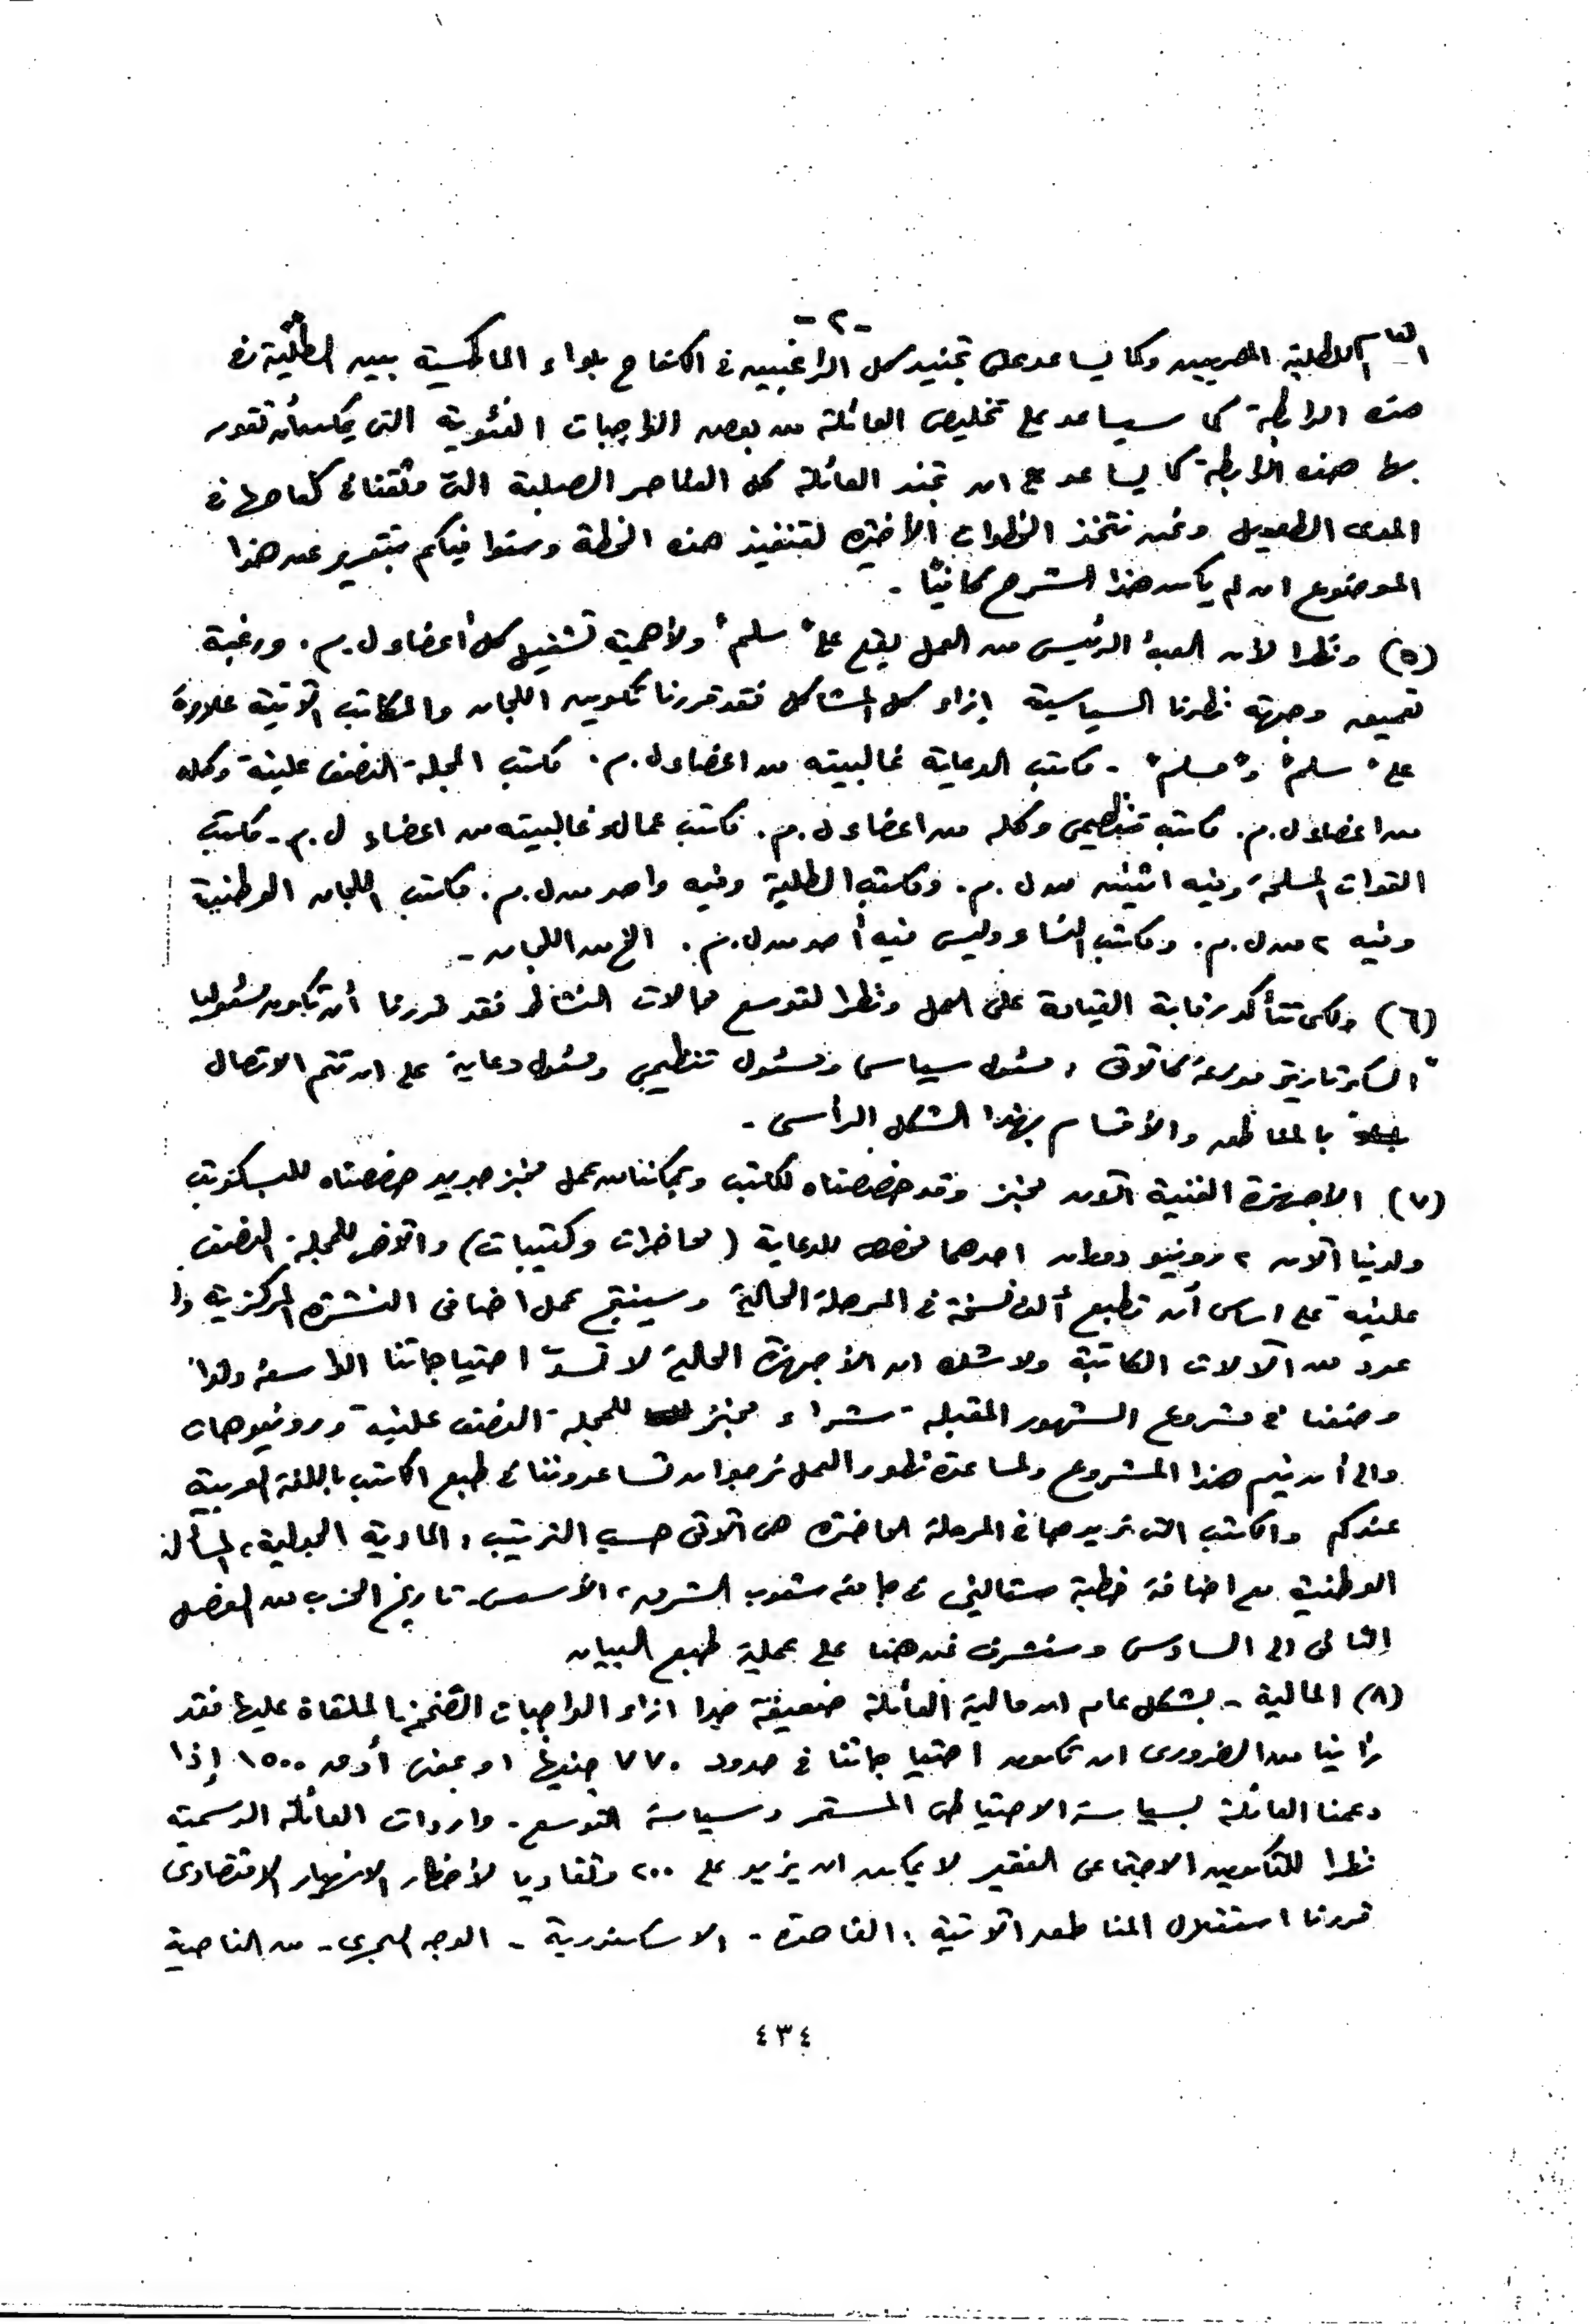 -٢-
للطلبة المصريين وكما يساعد على تجنيد كل الراغبين فى الكفاح بلواء الماركسية بين الطلبة فى
هذه الرابطة كما سيساعد على تخليص العائلة من بعض الواجبات الفئوية التى يمكن أن تقوم
بها هذه الرابطة كما يساعد على ان تجند العائلة كل العناصر الصلبة التى فى كفاحها فى
المدى الطويل ونحن نتخذ الخطوات الأخيرة لتنفيذ هذه الخطة وسنوافيكم بتقرير عن هذا
الموضوع ان لم يكن هذا الشرح كافيًا -
(٥) ونظرا لأن العبء الرئيسى من العمل يقع على "سلم" ولأهمية تشغيل كل أعضاء ل.م. ورغبة
تعميق وجهة نظرنا السياسية إزاء كل المشاكل فقد قررنا تكوين اللجان والمكاتب الآتية علاوة
على "سلم" و"مسلم" - مكتب الدعاية غالبيته من اعضاء ل.م. مكتب المجلة النصف علنية وكله
من اعضاء ل.م. مكتب تنظيمى وكله من اعضاء ل.م. مكتب عمال وغالبيته من اعضاء ل.م - مكتب
القوات المسلحة وفيه اثنين من ل.م. ومكتب الطلبة وفيه واحد من ل.م. مكتب اللجان الوطنية
وفيه ٢ من ل.م. ومكتب النساء وليس فيه أحد من ل.م. الخ من اللجان -
(٦) ولكى تتأكد رقابة القيادة على العمل ونظرا لتوسع مجالات النشاط فقد قررنا أن تكون مسئوليا
"السكرتارية موزعة كالآتى ، مسئول سياسى ومسئول تنظيمى ومسئول دعاية على ان تتم الاتصال
بالمناطق والأقسام بهذا الشكل الرأسى -
(٧) الاجهزة الفنية الآن مخبز وقد خصصناه للكتب ويمكننا من عمل مخبز جديد خصصناه للبسكوت
ولدينا الآن ٢ رونيو دوار احدهما مخصص للدعاية (محاضرات وكتيبات) والآخر للمجلة النصف
علنية على اساس أن تطبع ألف نسخة فى المرحلة الحالية وسينتج عمل اضافى النشرة المركزية
عدد من الآلات الكاتبة ولا شك ان الأجهزة الحالية لا تسدّ احتياجاتنا الواسعة ولذا
وضعنا فى مشروع الشهور المقبلة شراء مخبز للمجلة النصف علنية ورونيوهات
والى أن يتم هذا المشروع ولمساعدة تطور العمل نرجو ان تساعدوننا فى طبع الكتب باللغة العربية
عندكم والكتب التى نريدها فى المرحلة الحاضرة هى الآتى حسب الترتيب ، المادية الجدلية ، المسألة
الوطنية مع اضافة خطبة ستالين فى جامعة شعوب الشرق ، الأسس - تاريخ الحزب من الفصل
الثانى الى السادس وسنشرف نحن هنا على عملية طبع البيان
(٨) المالية - بشكل عام ان مالية العائلة ضعيفة جدا ازاء الواجبات الضخمة الملقاة عليها فقد
رأينا من الضرورى ان تكون احتياجاتنا فى حدود ٧٧٠ جنيها او بمعنى أدق ١٥٠٠ إذا
دعمنا العائلة بسياسة الاحتياطى المستمر وسياسة التوسع - واردات العائلة الرسمية
نظرا للتكوين الاجتماعى الفقير لا يمكن ان يزيد على ٢٠٠ وتفاديا لأخطار الانهيار الاقتصادى
قررنا استقلال المناطق الآتية : القاهرة - الاسكندرية - الوجه البحرى - من الناحية
٤٣٤